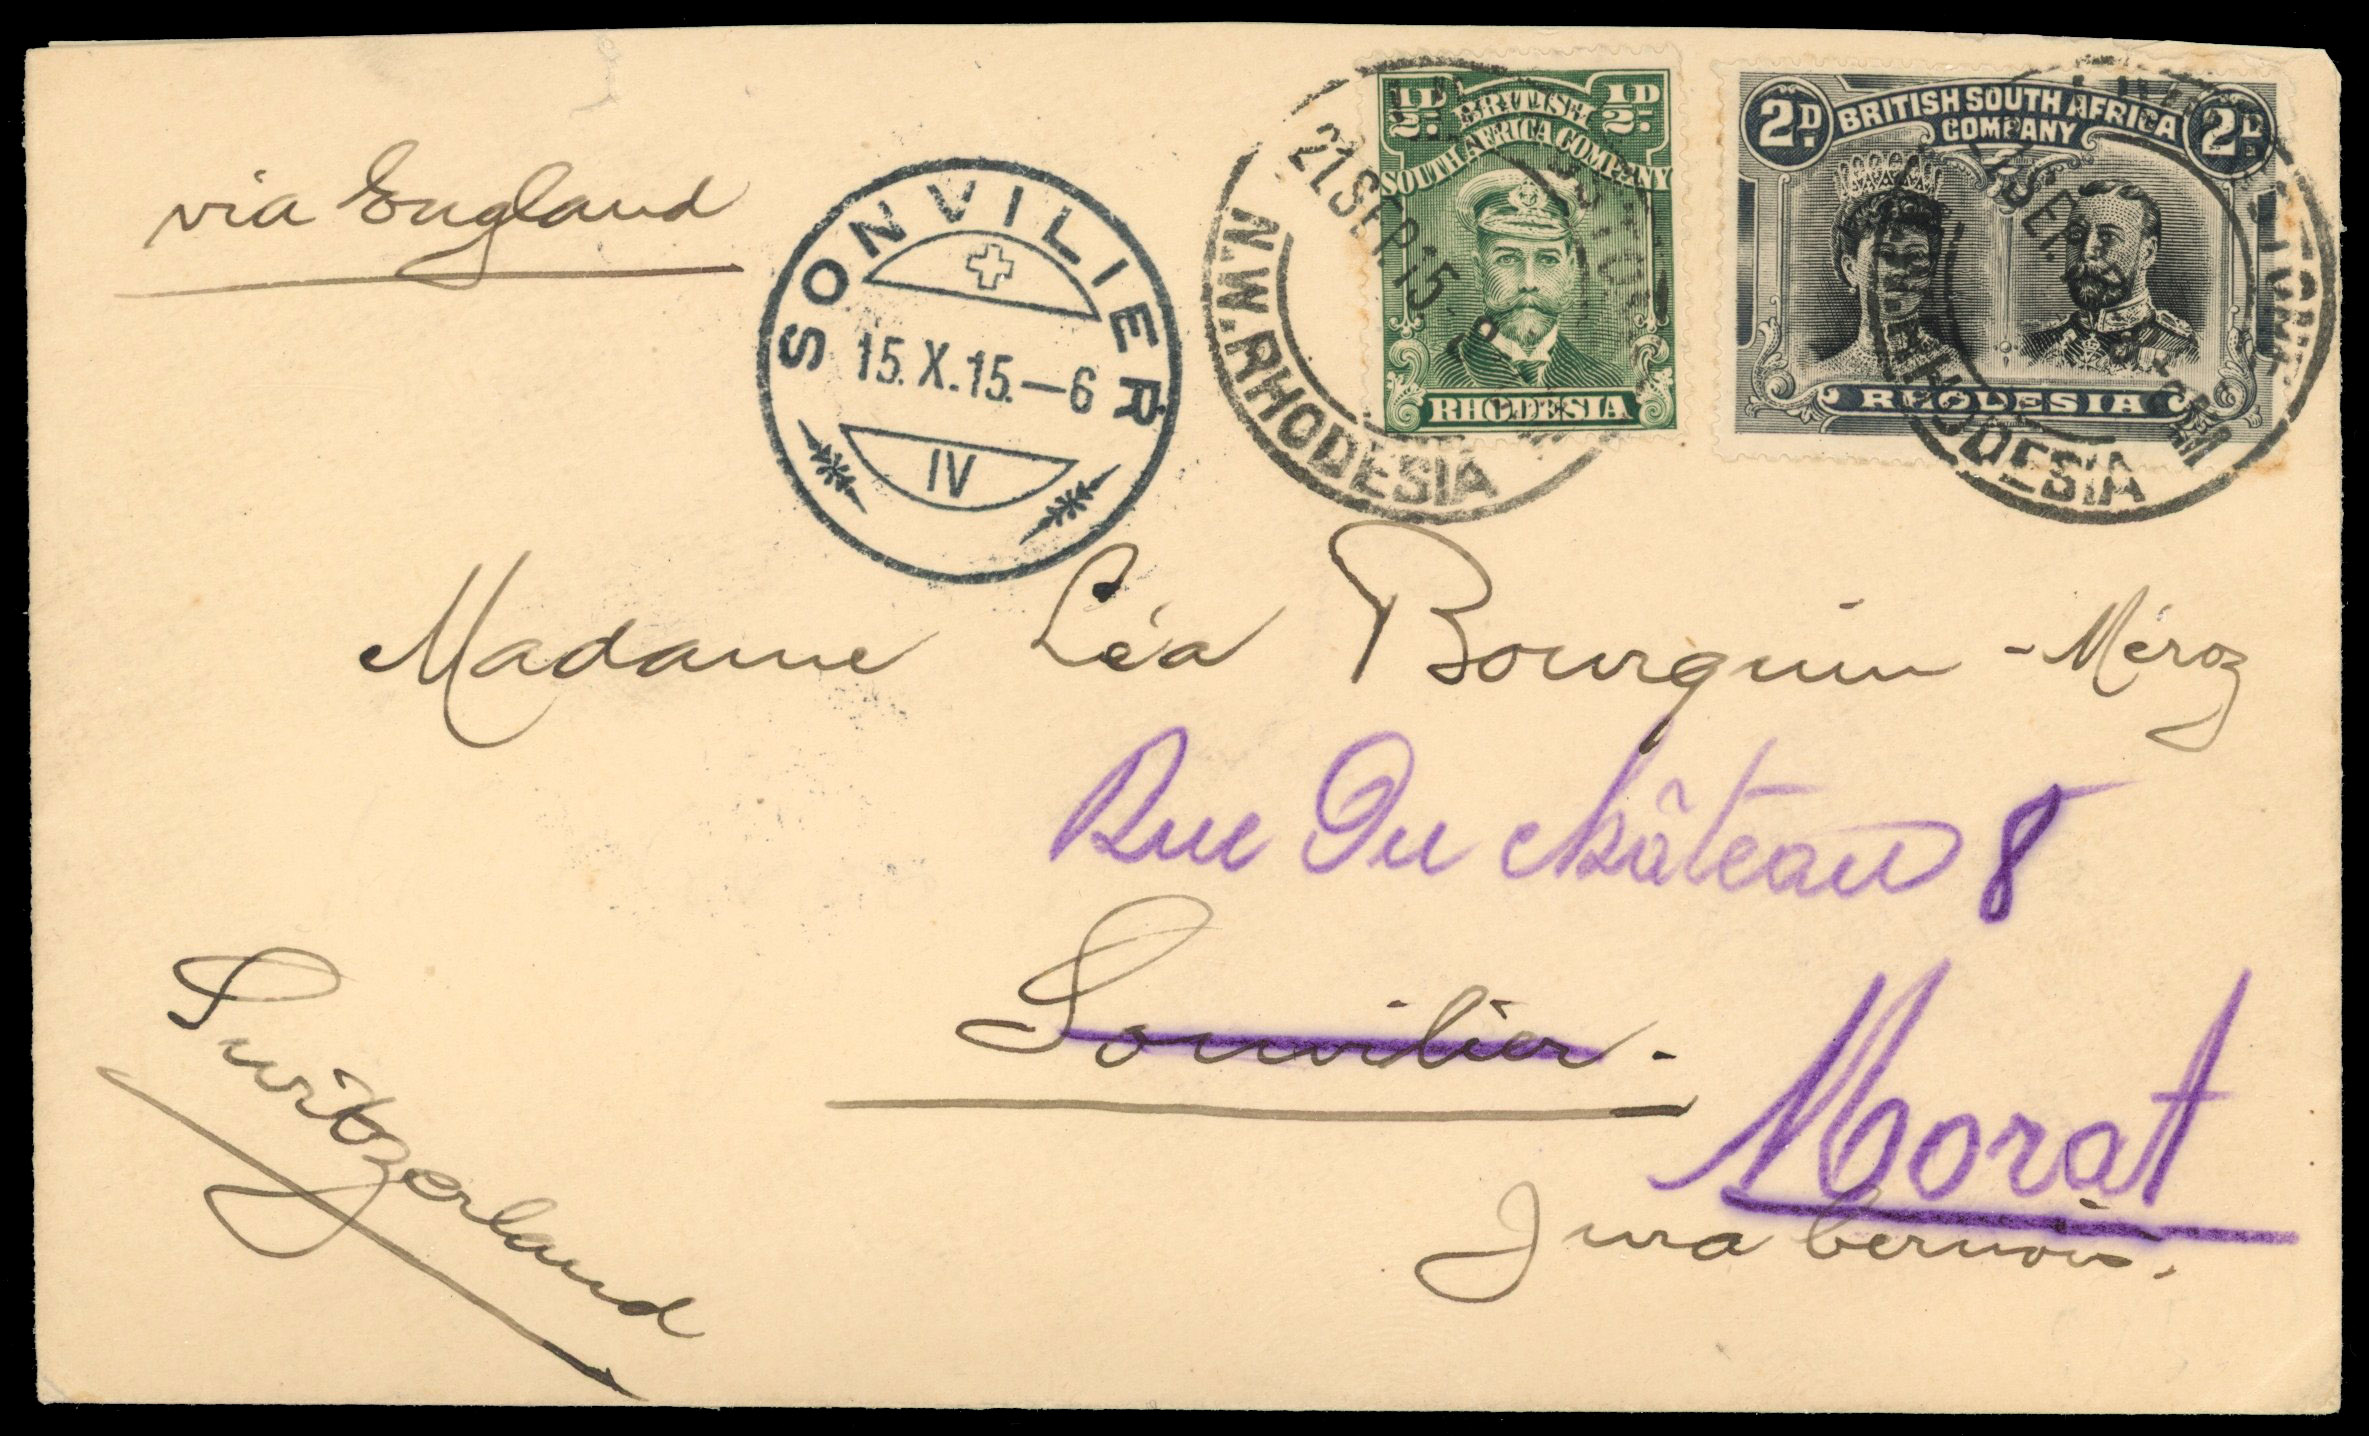 via England
SONVILIER
15.X.15.—6
IV
21 SEP. 15
N.W. RHODESIA
½D ½D
BRITISH
SOUTH AFRICA COMPANY
RHODESIA
2D. 2D.
BRITISH SOUTH AFRICA
COMPANY
RHODESIA
RHODESIA
Madame Léa Bourquin - Méroz
Rue Du château 8
Sonvilier.
Morat
Jura bernois.
Switzerland